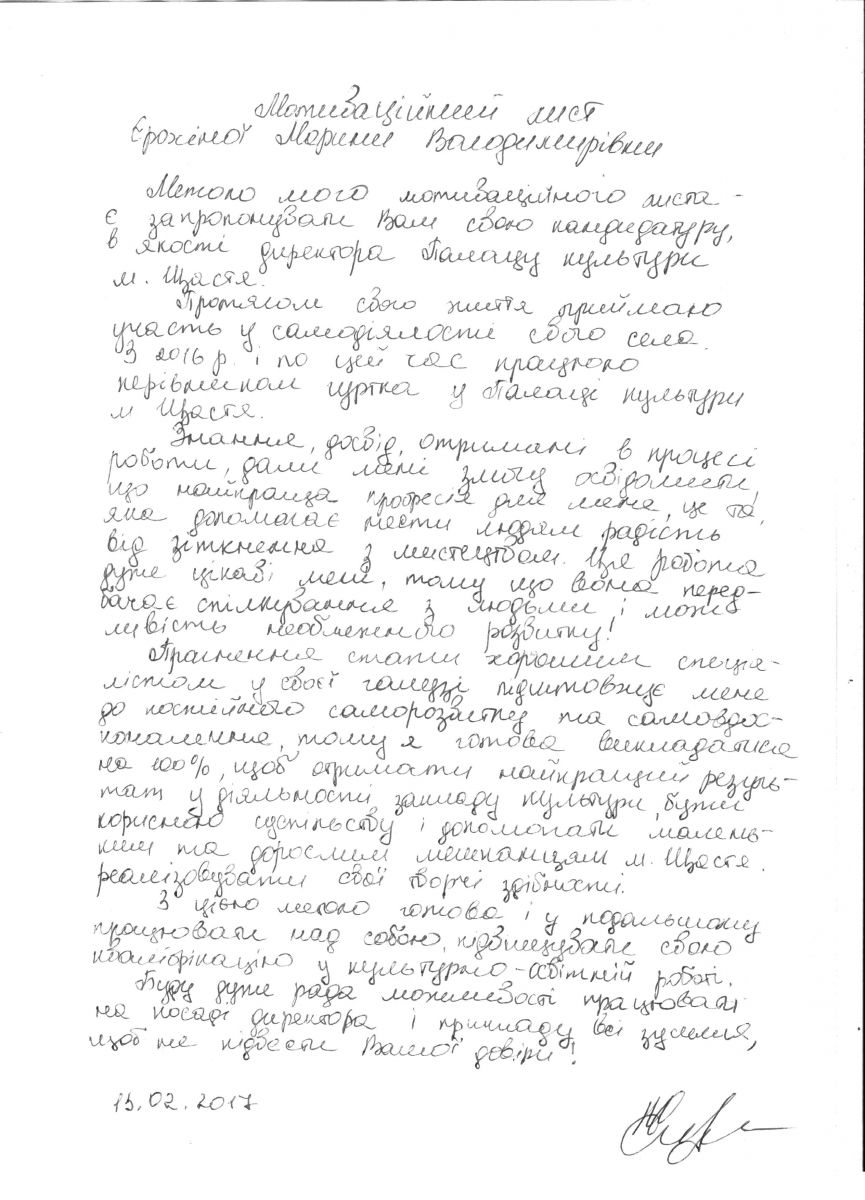 Мотиваційний лист
Єрохіної Марини Володимирівни
Метою мого мотиваційного листа -
є запропонувати Вам свою кандидатуру,
в якості директора Палацу культури
м. Щастя.
Протягом свого життя приймаю
участь у самодіялості свого села.
З 2016 р. і по цей час працюю
керівником гуртка у Палаці культури
м Щастя.
Знання, досвід, отримані в процесі
роботи, дали мені змогу усвідомити
що найкраща професія для мене, це та,
яка допомагає нести людям радість
від зіткнення з мистецтвом. Ця робота
дуже цікаві мене, тому що вона перед-
бачає спілкування з людьми і мож
ливість необмеженого розвитку!
Прагнення стати хорошим спеціа-
лістом у своєї галузі підштовхує мене
до постійного саморозвитку та самовдос-
коналення, тому я готова викладатися
на 100%, щоб отримати найкращий резуль-
тат у діяльності закладу культури, бути
корисною суспільству і допомогати малень-
ким та дорослим мешканцям м. Щастя.
реалізовувати свої творчі здібності.
З цією метою готова і у подальшому
працювати над собою, підвищувати свою
кваліфікацію у культурно-освітній роботі.
Буду дуже рада можливості працювати
на посаді директора і прикладу всі зусилля,
щоб не підвести Вашої довіри!
15.02.2017